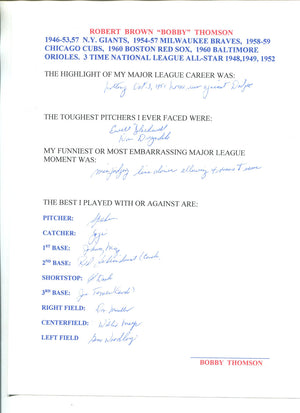 ROBERT BROWN "BOBBY" THOMSON
1946-53,57 N.Y. GIANTS, 1954-57 MILWAUKEE BRAVES, 1958-59
CHICAGO CUBS, 1960 BOSTON RED SOX, 1960 BALTIMORE
ORIOLES. 3 TIME NATIONAL LEAGUE ALL-STAR 1948,1949, 1952
THE HIGHLIGHT OF MY MAJOR LEAGUE CAREER WAS:
hitting Oct. 3, 1951 home run against
THE TOUGHEST PITCHERS I EVER FACED WERE:
Ewell Blackwell
Don Drysdale
MY FUNNIEST OR MOST EMBARRASSING MAJOR LEAGUE
MOMENT WAS:
misjudging line drive allowing
THE BEST I PLAYED WITH OR AGAINST ARE:
PITCHER:
CATCHER:
1ST BASE: Johnny Mize
2ND BASE: Red Schoendienst
SHORTSTOP: Al Dark
3RD BASE: Joe
RIGHT FIELD: Mueller
CENTERFIELD: Willie Mays
LEFT FIELD Gene Woodling
BOBBY THOMSON